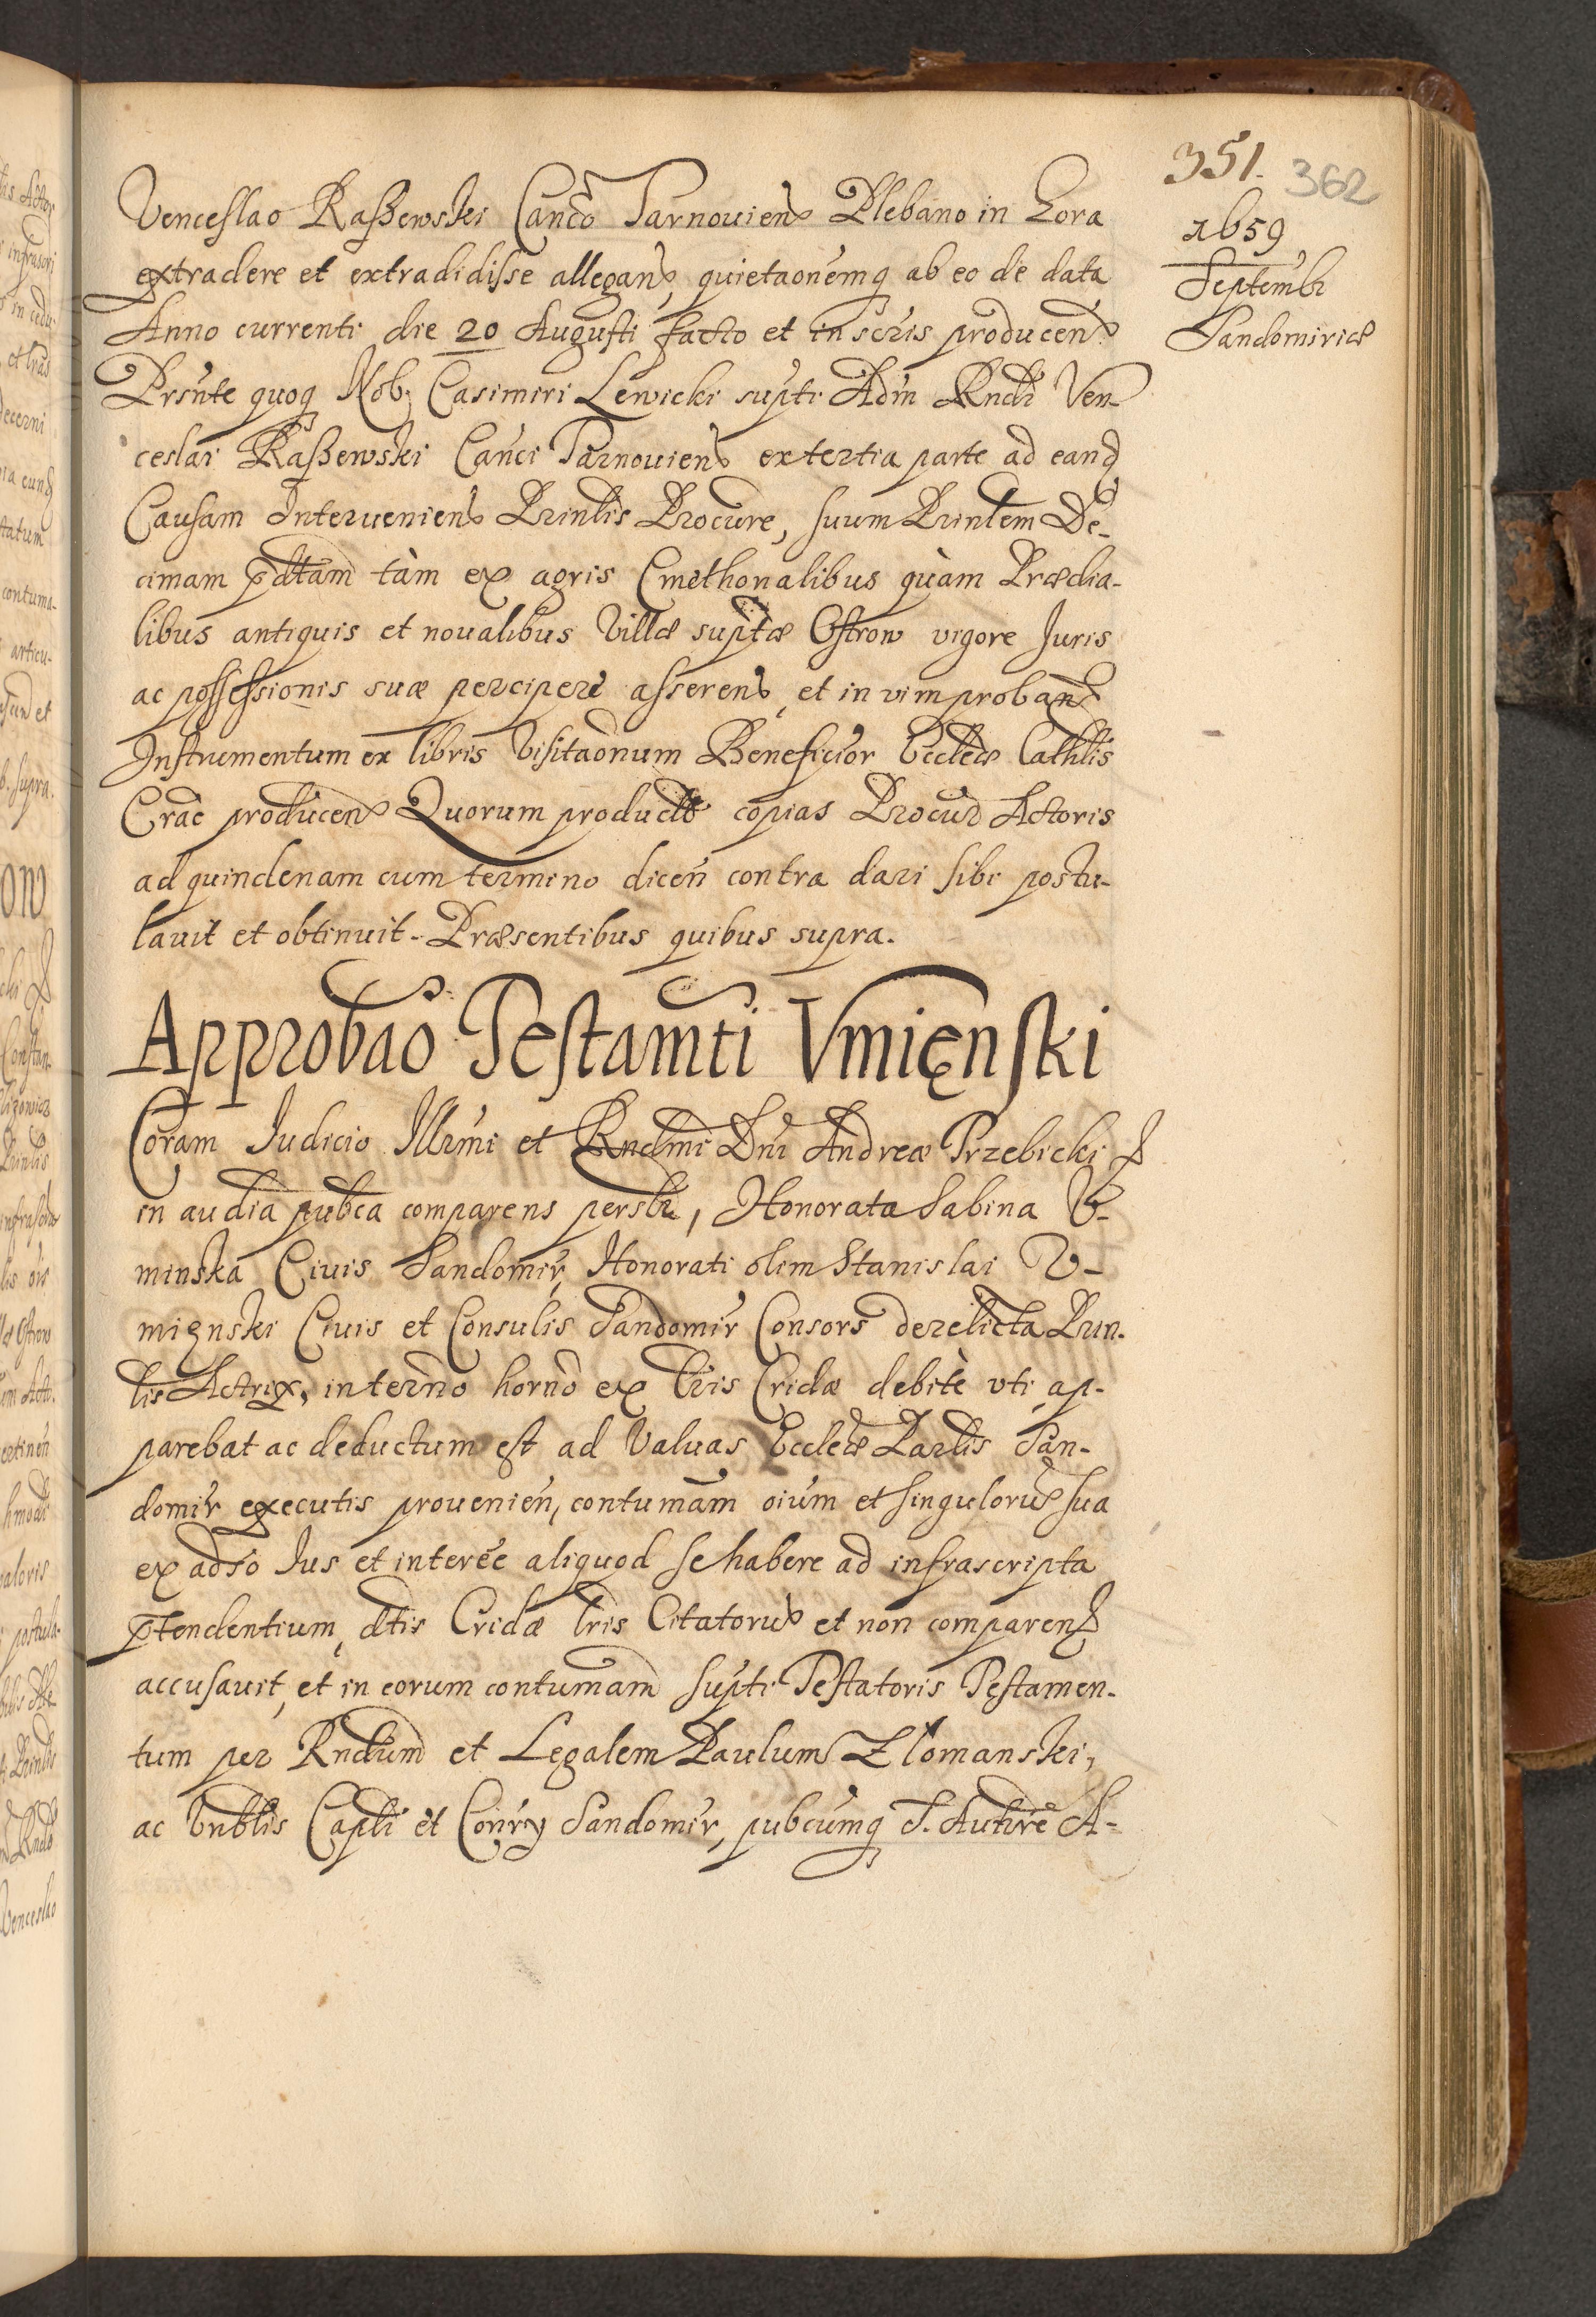 351. 362
1659
Septembr
Sandomiriæ
Venceslao Raszewski Canco Tarnouien Plebano in Lora
extradere et extradidisse allegan, quietaonemq ab eo de data
Anno currenti die 20 Augusti facto et in scris producen
Prsnte quoq Nob Casimiri Lewicki supti Adm Rndi Ven-
ceslai Raszewski Canci Tarnouien ex tertia parte ad eand
Causam Interuenien Prinlis Procure, suum Prinlem De-
cimam pdtam tàm ex agris Cmethonalibus quàm Prædia-
libus antiquis et noualibus Villæ suptæ Ostrow vigore Juris
ac possessionis suæ percipere asseren, et in vim proban
Instrumentum ex libris Visitaonum Beneficior Eccleæ Cathlis
Crac producen Quorum product copias Procur Actoris
ad quindenam cum termino dicen contra dari sibi postu-
lauit et obtinuit. Præsentibus quibus supra.
Approbao Testamti Vmięnski
Coram Judicio Illrmi et Rndmi Dni Andreæ Trzebicki
in audia pubca comparens persblr, Honorata Sabina V-
minska Ciuis Sandomir, Honorati olim Stanislai V-
mięnski Ciuis et Consulis Sandomir Consors derelicta Prin-
lis Actrix, in termno horno ex lris Cridæ debitè vti ap-
parebat ac deductum est ad Valuas Eccleæ Parlis San-
domir executis prouenien, contumam oium et singulorum sua
ex adso Jus et interee aliquod se habere ad infrascripta
ptendentium, dtis Cridæ lris Citatorum et non comparen
accusauit, et in eorum contumam supti Testatoris Testamen-
tum per Rndum et Legalem Paulum Złomanski,
ac Vnblis Capli et Conry Sandomir, pubcumq S. Authre A-